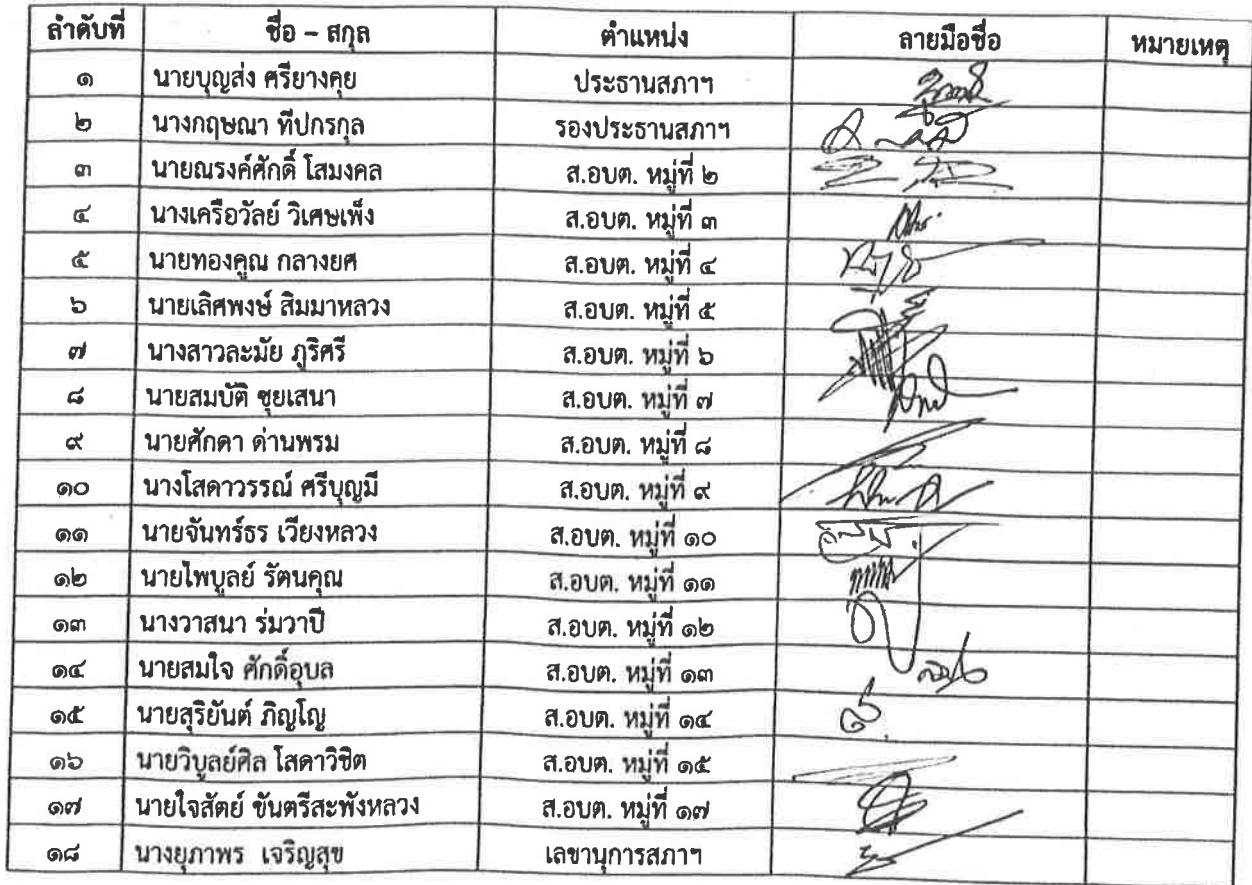 ลำดับที่ ชื่อ – สกุล ตำแหน่ง ลายมือชื่อ หมายเหตุ
๑ นายบุญส่ง ศรียางคุย ประธานสภาฯ
๒ นางกฤษณา ทีปกรกุล รองประธานสภาฯ
๓ นายณรงค์ศักดิ์ โสมงคล ส.อบต. หมู่ที่ ๒
๔ นางเครือวัลย์ วิเศษเพ็ง ส.อบต. หมู่ที่ ๓
๕ นายทองคูณ กลางยศ ส.อบต. หมู่ที่ ๔
๖ นายเลิศพงษ์ สิมมาหลวง ส.อบต. หมู่ที่ ๕
๗ นางสาวละมัย ภูริศรี ส.อบต. หมู่ที่ ๖
๘ นายสมบัติ ซุยเสนา ส.อบต. หมู่ที่ ๗
๙ นายศักดา ด่านพรม ส.อบต. หมู่ที่ ๘
๑๐ นางโสดาวรรณ์ ศรีบุญมี ส.อบต. หมู่ที่ ๙
๑๑ นายจันทร์ธร เวียงหลวง ส.อบต. หมู่ที่ ๑๐
๑๒ นายไพบูลย์ รัตนคุณ ส.อบต. หมู่ที่ ๑๑
๑๓ นางวาสนา ร่มวาปี ส.อบต. หมู่ที่ ๑๒
๑๔ นายสมใจ ศักดิ์อุบล ส.อบต. หมู่ที่ ๑๓
๑๕ นายสุริยันต์ ภิญโญ ส.อบต. หมู่ที่ ๑๔
๑๖ นายวิบูลย์ศิล โสดาวิชิต ส.อบต. หมู่ที่ ๑๕
๑๗ นายใจสัตย์ ขันตรีสะพังหลวง ส.อบต. หมู่ที่ ๑๗
๑๘ นางยุภาพร เจริญสุข เลขานุการสภาฯ